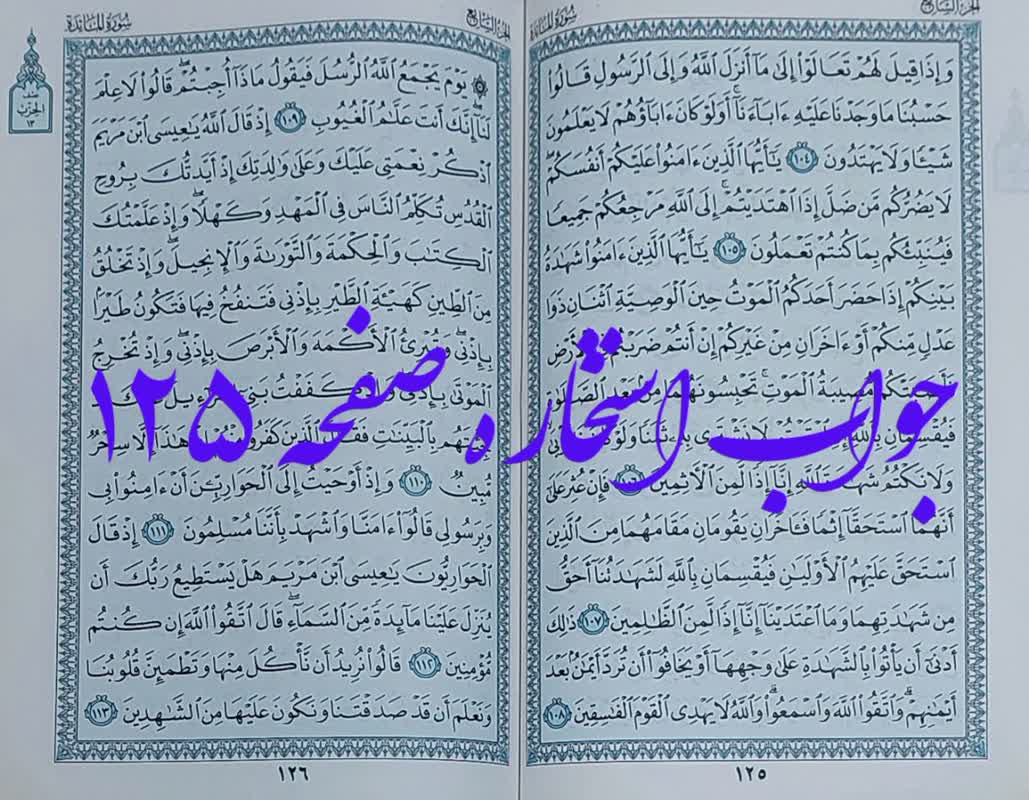 الجزء السابع
سورة المائدة
وَإِذَا قِيلَ لَهُمْ تَعَالَوْا۟ إِلَىٰ مَآ أَنزَلَ ٱللَّهُ وَإِلَى ٱلرَّسُولِ قَالُوا۟
حَسْبُنَا مَا وَجَدْنَا عَلَيْهِ ءَابَآءَنَآ أَوَلَوْ كَانَ ءَابَآؤُهُمْ لَا يَعْلَمُونَ
شَيْـًٔا وَلَا يَهْتَدُونَ ١٠٤ يَـٰٓأَيُّهَا ٱلَّذِينَ ءَامَنُوا۟ عَلَيْكُمْ أَنفُسَكُمْ
لَا يَضُرُّكُم مَّن ضَلَّ إِذَا ٱهْتَدَيْتُمْ إِلَى ٱللَّهِ مَرْجِعُكُمْ جَمِيعًا
فَيُنَبِّئُكُم بِمَا كُنتُمْ تَعْمَلُونَ ١٠٥ يَـٰٓأَيُّهَا ٱلَّذِينَ ءَامَنُوا۟ شَهَـٰدَةُ
بَيْنِكُمْ إِذَا حَضَرَ أَحَدَكُمُ ٱلْمَوْتُ حِينَ ٱلْوَصِيَّةِ ٱثْنَانِ ذَوَا
عَدْلٍ مِّنكُمْ أَوْ ءَاخَرَانِ مِنْ غَيْرِكُمْ إِنْ أَنتُمْ ضَرَبْتُمْ ٱلْأَرْضِ
مُّصِيبَةُ ٱلْمَوْتِ تَحْبِسُونَهُمَا مِنۢ بَعْدِ ٱلصَّلَوٰةِ
فَيُقْسِمَانِ بِٱللَّهِ لَا نَشْتَرِى بِهِۦ ثَمَنًا وَلَوْ كَانَ
وَلَا نَكْتُمُ شَهَـٰدَةَ ٱللَّهِ إِنَّآ إِذًا لَّمِنَ ٱلْـَٔاثِمِينَ ١٠٦ فَإِنْ عُثِرَ عَلَىٰٓ
أَنَّهُمَا ٱسْتَحَقَّآ إِثْمًا فَـَٔاخَرَانِ يَقُومَانِ مَقَامَهُمَا مِنَ ٱلَّذِينَ
ٱسْتَحَقَّ عَلَيْهِمُ ٱلْأَوْلَيَـٰنِ فَيُقْسِمَانِ بِٱللَّهِ لَشَهَـٰدَتُنَآ أَحَقُّ
مِن شَهَـٰدَتِهِمَا وَمَا ٱعْتَدَيْنَآ إِنَّآ إِذًا لَّمِنَ ٱلظَّـٰلِمِينَ ١٠٧ ذَٰلِكَ
أَدْنَىٰٓ أَن يَأْتُوا۟ بِٱلشَّهَـٰدَةِ عَلَىٰ وَجْهِهَآ أَوْ يَخَافُوٓا۟ أَن تُرَدَّ أَيْمَـٰنٌۢ بَعْدَ
أَيْمَـٰنِهِمْ وَٱتَّقُوا۟ ٱللَّهَ وَٱسْمَعُوا۟ وَٱللَّهُ لَا يَهْدِى ٱلْقَوْمَ ٱلْفَـٰسِقِينَ ١٠٨
١٢٥
جواب استخاره صفحه ۱۲۵
الجزء السابع
سورة المائدة
نصف
الحزب
١٣
يَوْمَ يَجْمَعُ ٱللَّهُ ٱلرُّسُلَ فَيَقُولُ مَاذَآ أُجِبْتُمْ قَالُوا۟ لَا عِلْمَ
لَنَآ إِنَّكَ أَنتَ عَلَّـٰمُ ٱلْغُيُوبِ ١٠٩ إِذْ قَالَ ٱللَّهُ يَـٰعِيسَى ٱبْنَ مَرْيَمَ
ٱذْكُرْ نِعْمَتِى عَلَيْكَ وَعَلَىٰ وَٰلِدَتِكَ إِذْ أَيَّدتُّكَ بِرُوحِ
ٱلْقُدُسِ تُكَلِّمُ ٱلنَّاسَ فِى ٱلْمَهْدِ وَكَهْلًا وَإِذْ عَلَّمْتُكَ
ٱلْكِتَـٰبَ وَٱلْحِكْمَةَ وَٱلتَّوْرَىٰةَ وَٱلْإِنجِيلَ وَإِذْ تَخْلُقُ
مِنَ ٱلطِّينِ كَهَيْـَٔةِ ٱلطَّيْرِ بِإِذْنِى فَتَنفُخُ فِيهَا فَتَكُونُ طَيْرًۢا
بِإِذْنِى وَتُبْرِئُ ٱلْأَكْمَهَ وَٱلْأَبْرَصَ بِإِذْنِى وَإِذْ تُخْرِجُ
ٱلْمَوْتَىٰ بِإِذْنِى كَفَفْتُ بَنِىٓ
بِٱلْبَيِّنَـٰتِ فَقَالَ ٱلَّذِينَ كَفَرُوا۟ هَـٰذَآ إِلَّا سِحْرٌ
مُّبِينٌ ١١٠ وَإِذْ أَوْحَيْتُ إِلَى ٱلْحَوَارِيِّـۧنَ أَنْ ءَامِنُوا۟ بِى
وَبِرَسُولِى قَالُوٓا۟ ءَامَنَّا وَٱشْهَدْ بِأَنَّنَا مُسْلِمُونَ ١١١ إِذْ قَالَ
ٱلْحَوَارِيُّونَ يَـٰعِيسَى ٱبْنَ مَرْيَمَ هَلْ يَسْتَطِيعُ رَبُّكَ أَن
يُنَزِّلَ عَلَيْنَا مَآئِدَةً مِّنَ ٱلسَّمَآءِ قَالَ ٱتَّقُوا۟ ٱللَّهَ إِن كُنتُم
مُّؤْمِنِينَ ١١٢ قَالُوا۟ نُرِيدُ أَن نَّأْكُلَ مِنْهَا وَتَطْمَئِنَّ قُلُوبُنَا
وَنَعْلَمَ أَن قَدْ صَدَقْتَنَا وَنَكُونَ عَلَيْهَا مِنَ ٱلشَّـٰهِدِينَ ١١٣
١٢٦